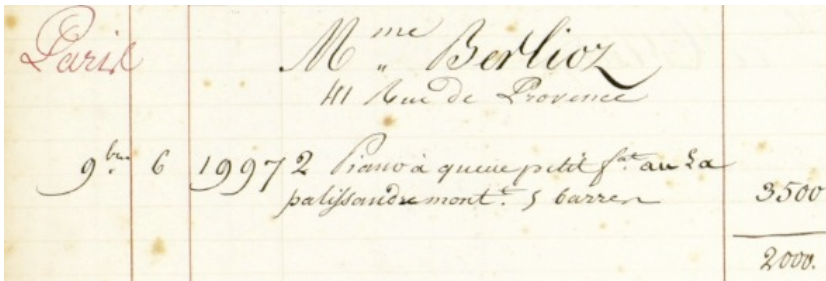 Paris
Mme Berlioz
41 Rue de Provence
9bre 6 19972 Piano à queue petit fat au La
palissandre mont.t 5 barres 3500
2000.